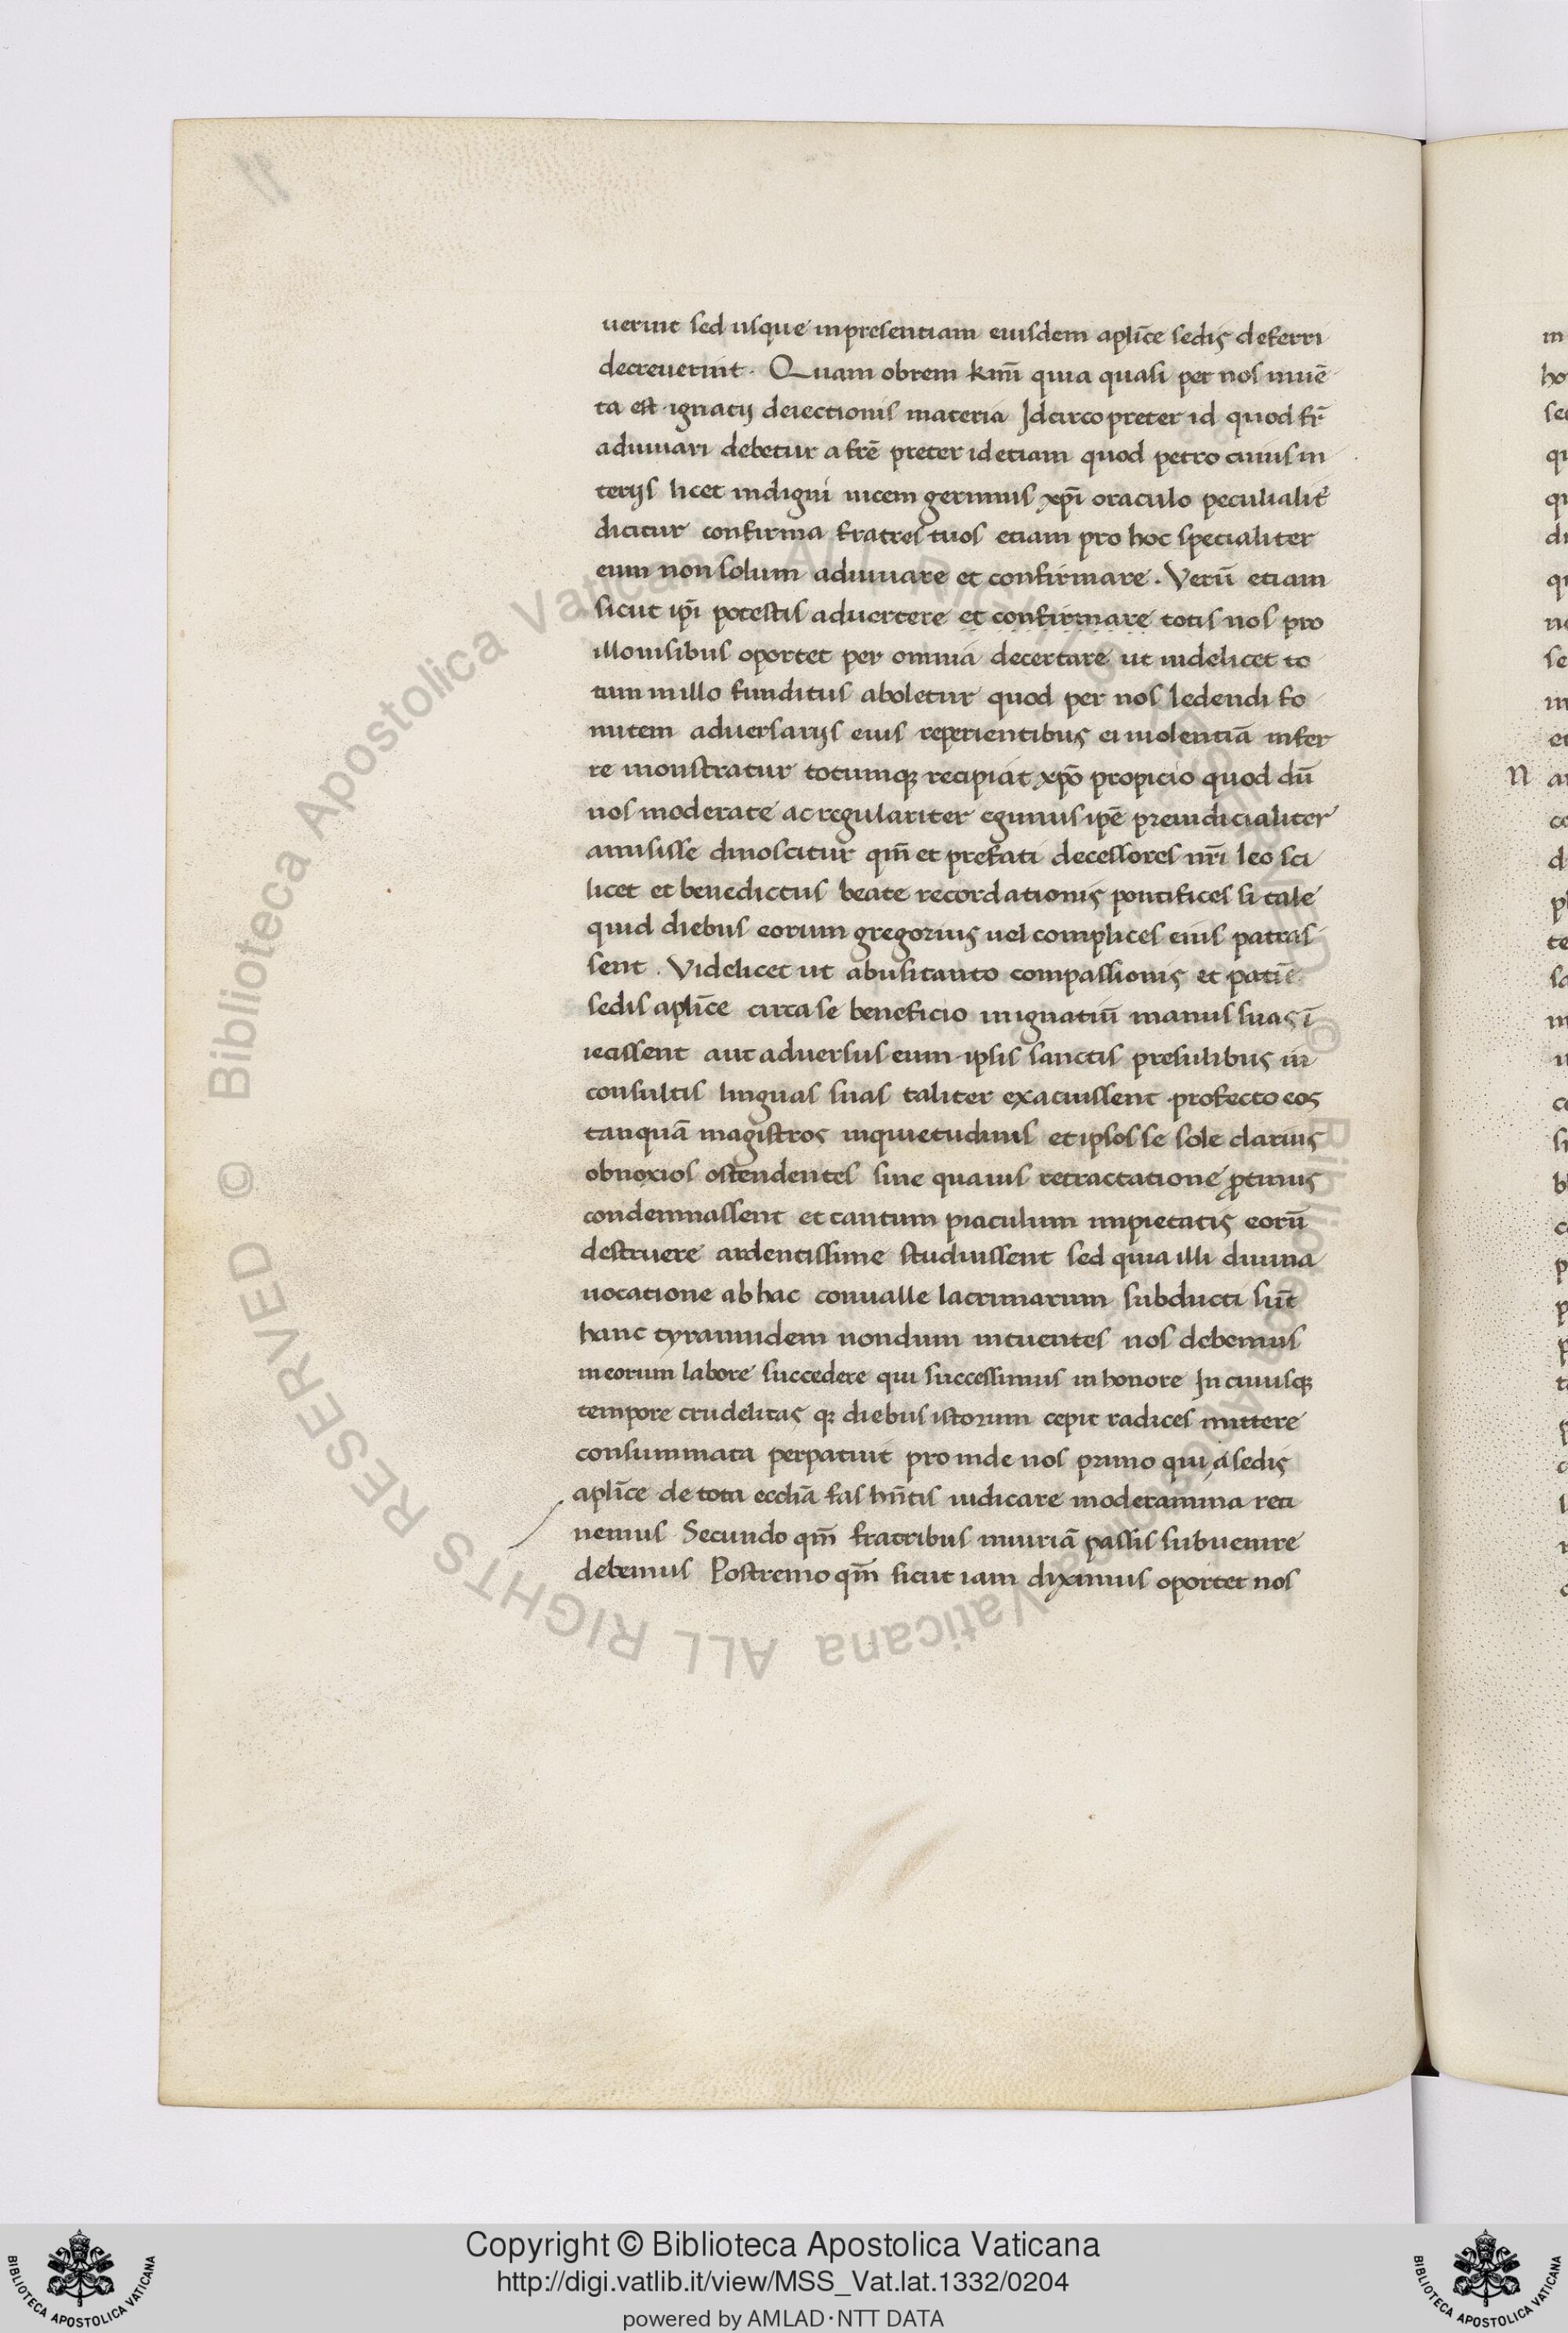 uerint sed usque inpresentiam eiusdem aplic̄e sedis deferri
decreuerint. Quam obrem kmī quia quasi per nos inuē
ta est ignatij deiectionis materia Idcirco preter id quod fr̄i
adiuuari debetur a frē preter id etiam quod petro cuius in
terijs licet indigni uicem gerimus xp̄i oraculo peculialit̄
dicitur confirma fratres tuos etiam pro hoc specialiter
eum non solum adiuuare et confirmare. Verū etiam
sicut ip̄i potestis aduertere et confirmare totis nos pro
illo uisibus oportet per omnia decertare ut uidelicet to
tum in illo funditus aboletur quod per nos ledendi fo
mitem aduersarijs eius reperientibus ei uiolentiā infer
re monstratur totumq; recipiat xp̄o propicio quod dū
nos moderate ac regulariter egimus ip̄e preiudicialiter
amisisse dinoscitur qm̄ et prefati decessores nr̄i leo sci
licet et benedictus beate recordationis pontifices si tale
quid diebus eorum gregorius uel complices eius patras
sent. Videlicet ut abusi tanto compassionis et patiē
sedis aplic̄e circa se beneficio in ignatiū manus suas ī
iecissent aut aduersus eum ipsis sanctis presulibus in
consultis linguas suas taliter exacuissent profecto eos
tanquā magistros inquietudinis et ipsos se sole clarius
obnoxios ostendentes sine quauis retractatione p̄tinus
condemnassent et tantum piaculum impietatis eorū
destruere ardentissime studuissent sed quia illi diuina
uocatione ab hac conualle lacrimarum subducti sūt
hanc tyrannidem nondum intuentes nos debemus
in eorum labore succedere qui successimus in honore In cuiusq;
tempore crudelitas q; diebus istorum cepit radices mittere
consummata perpatuit proinde nos primo qui a sedis
aplic̄e de tota ecclīa fas hn̄tis iudicare moderamina reti
nemus Secundo qm̄ fratribus iniuriā passis subuenire
debemus Postremo qm̄ sicut iam diximus oportet nos
N
Biblioteca Apostolica Vaticana ALL RIGHTS RESERVED ©
Copyright © Biblioteca Apostolica Vaticana
http://digi.vatlib.it/view/MSS_Vat.lat.1332/0204
powered by AMLAD·NTT DATA
BIBLIOTECA APOSTOLICA VATICANA
BIBLIOTECA APOSTOLICA VATICANA